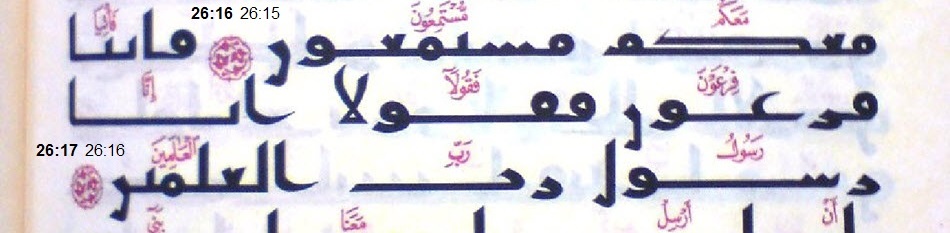 مَعَكُم مُّسْتَمِعُونَ 26:15 26:16 فَأْتِيَا
معكم مستمعون فاتيا
فِرْعَوْنَ فَقُولَآ إِنَّا
فرعون فقولا انا
رَسُولُ رَبِّ الْعَالَمِينَ 26:16 26:17
رسول رب العلمين
أَنْ أَرْسِلْ مَعَنَا بَنِي